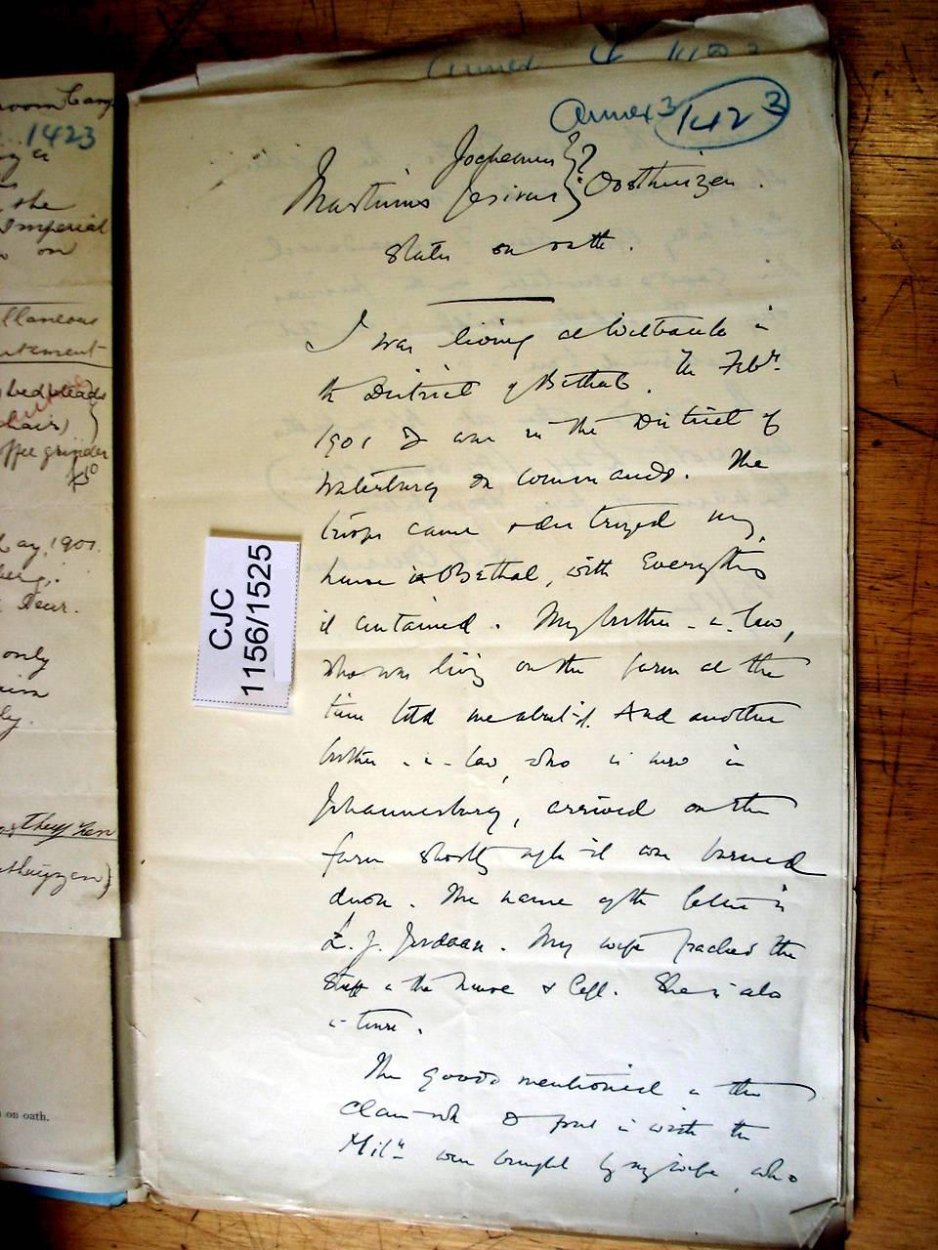 Annex 3 1423
Jochemus } ?
Martinus Jesivus } Oosthuizen.
States on oath.
I was living at Witbank in
the District of Bethal. In Febr.
1901 I was in the District of
Waterburg on commando. The
troops came & destroyed my
house in Bethal, with Everything
it contained. My brother-in-law,
who was living on the farm at the
time told me about it. And another
brother-in-law, who is now in
Johannesburg, arrived on the
farm shortly after it was burned
down. The name of the latter is
L. J. Jordaan. My wife packed the
stuff in the house & left. She is also
in town.
The goods mentioned in the
claim wh I put in with the
Mily were bought by my wife, who
CJC
1156/1525
room Camp
1423
the
Imperial
on
llaneous
atement
bedsteads
chairs }
offee grinder
£10
ay, 1901.
berg,
only
ly.
on oath.